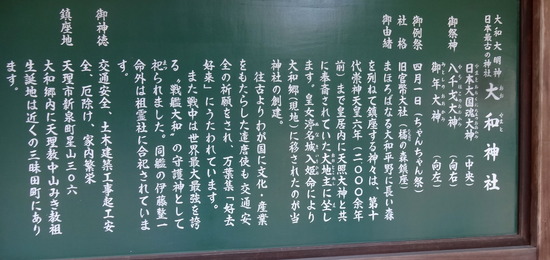 大和大明神
日本最古の神社
大和神社
御祭神
日本大国魂大神(中央)
八千戈大神(向右)
御年大神(向左)
御例祭 四月一日(ちゃんちゃん祭)
社格 旧官幣大社(橘の森鎮座)
御由緒 まほろばなる大和平野に長い森
を列ねて鎮座する神々は、第十
代崇神天皇六年(二〇〇〇余年
前)まで皇居内に天照大神と共
に奉斎されていた大地主に坐し
ます。皇女渟名城入姫命により
大和郷(現地)に移されたのが当
神社の創建。
往古よりわが国に文化・産業
をもたらした遣唐使も交通安
全の祈願をされ、万葉集「好去
好来」にうたわれています。
また戦中は世界最大最強を誇
る〝戦艦大和〟の守護神として
祀られました。同艦の伊藤整一
命外は祖霊社に合祀されていま
す。
御神徳 交通安全、土木建築工事起工安
全、厄除け、家内繁栄
鎮座地 天理市新泉町星山三〇六
大和郷内に天理教中山みき教祖
生誕地は近くの三昧田町にあり
ます。